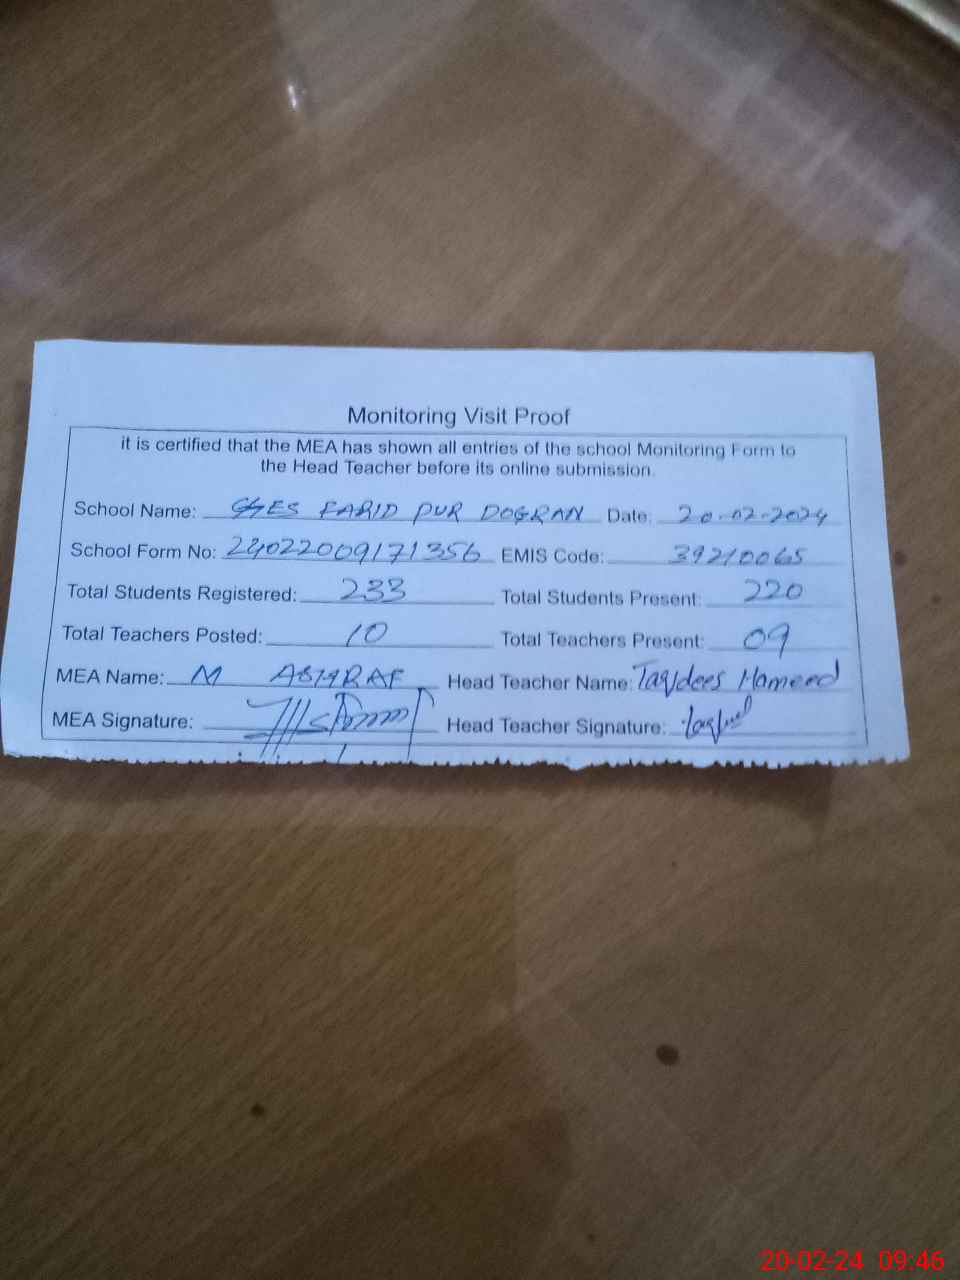 Monitoring Visit Proof
it is certified that the MEA has shown all entries of the school Monitoring Form to
the Head Teacher before its online submission.
School Name: GGES FARID PUR DOGRAN Date: 20-02-2024
School Form No: 24022009171356 EMIS Code: 39210065
Total Students Registered: 233 Total Students Present: 220
Total Teachers Posted: 10 Total Teachers Present: 09
MEA Name: M ASHRAF Head Teacher Name: Taqdees Hameed
MEA Signature: Head Teacher Signature:
20-02-24 09:46